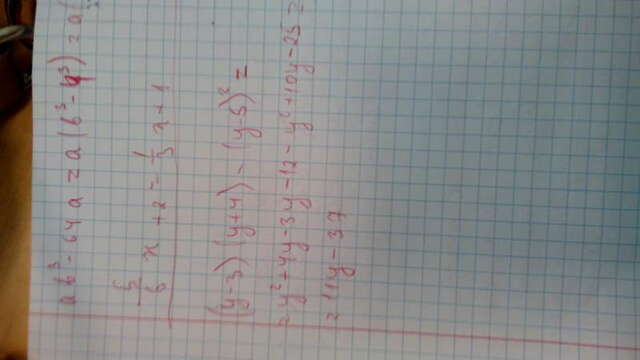 ab³ - 64a = a(b³ - 4³) = a(
5/6 x + 2 = 1/3 x + 1
(y-3)(y+4) - (y-5)² =
= y² + 4y - 3y - 12 - y² + 10y - 25 =
= 11y - 37